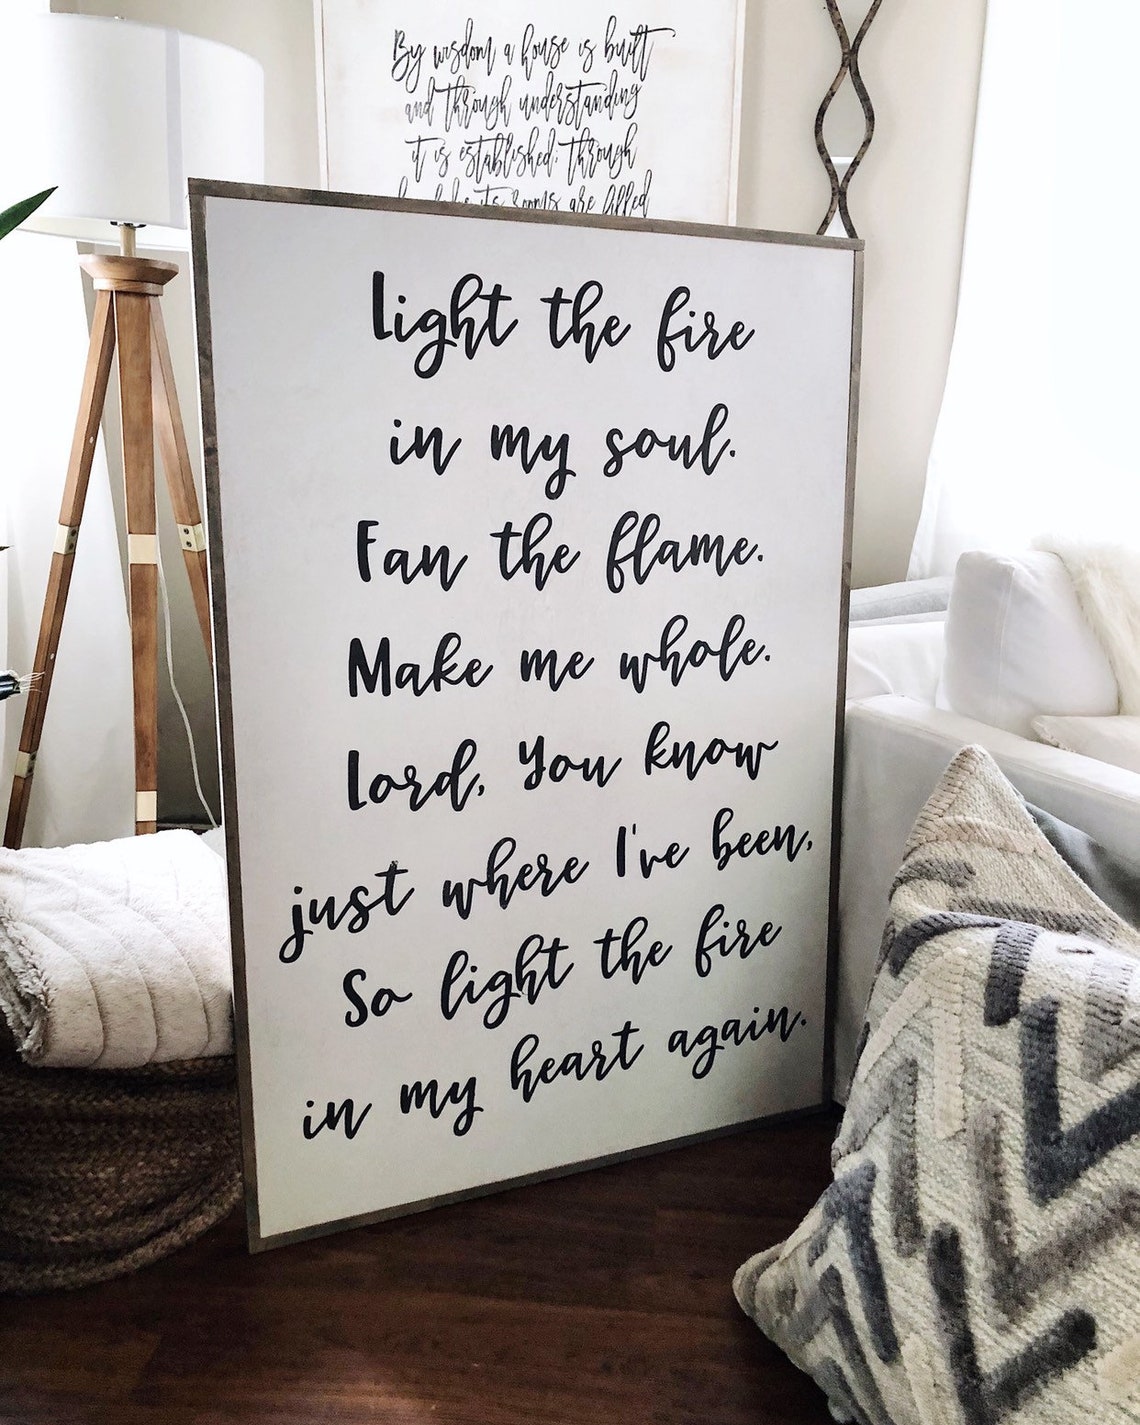 By wisdom a house is built
and through understanding
it is established; through
its rooms are filled
Light the fire
in my soul.
Fan the flame.
Make me whole.
Lord, You know
just where I've been,
So light the fire
in my heart again.